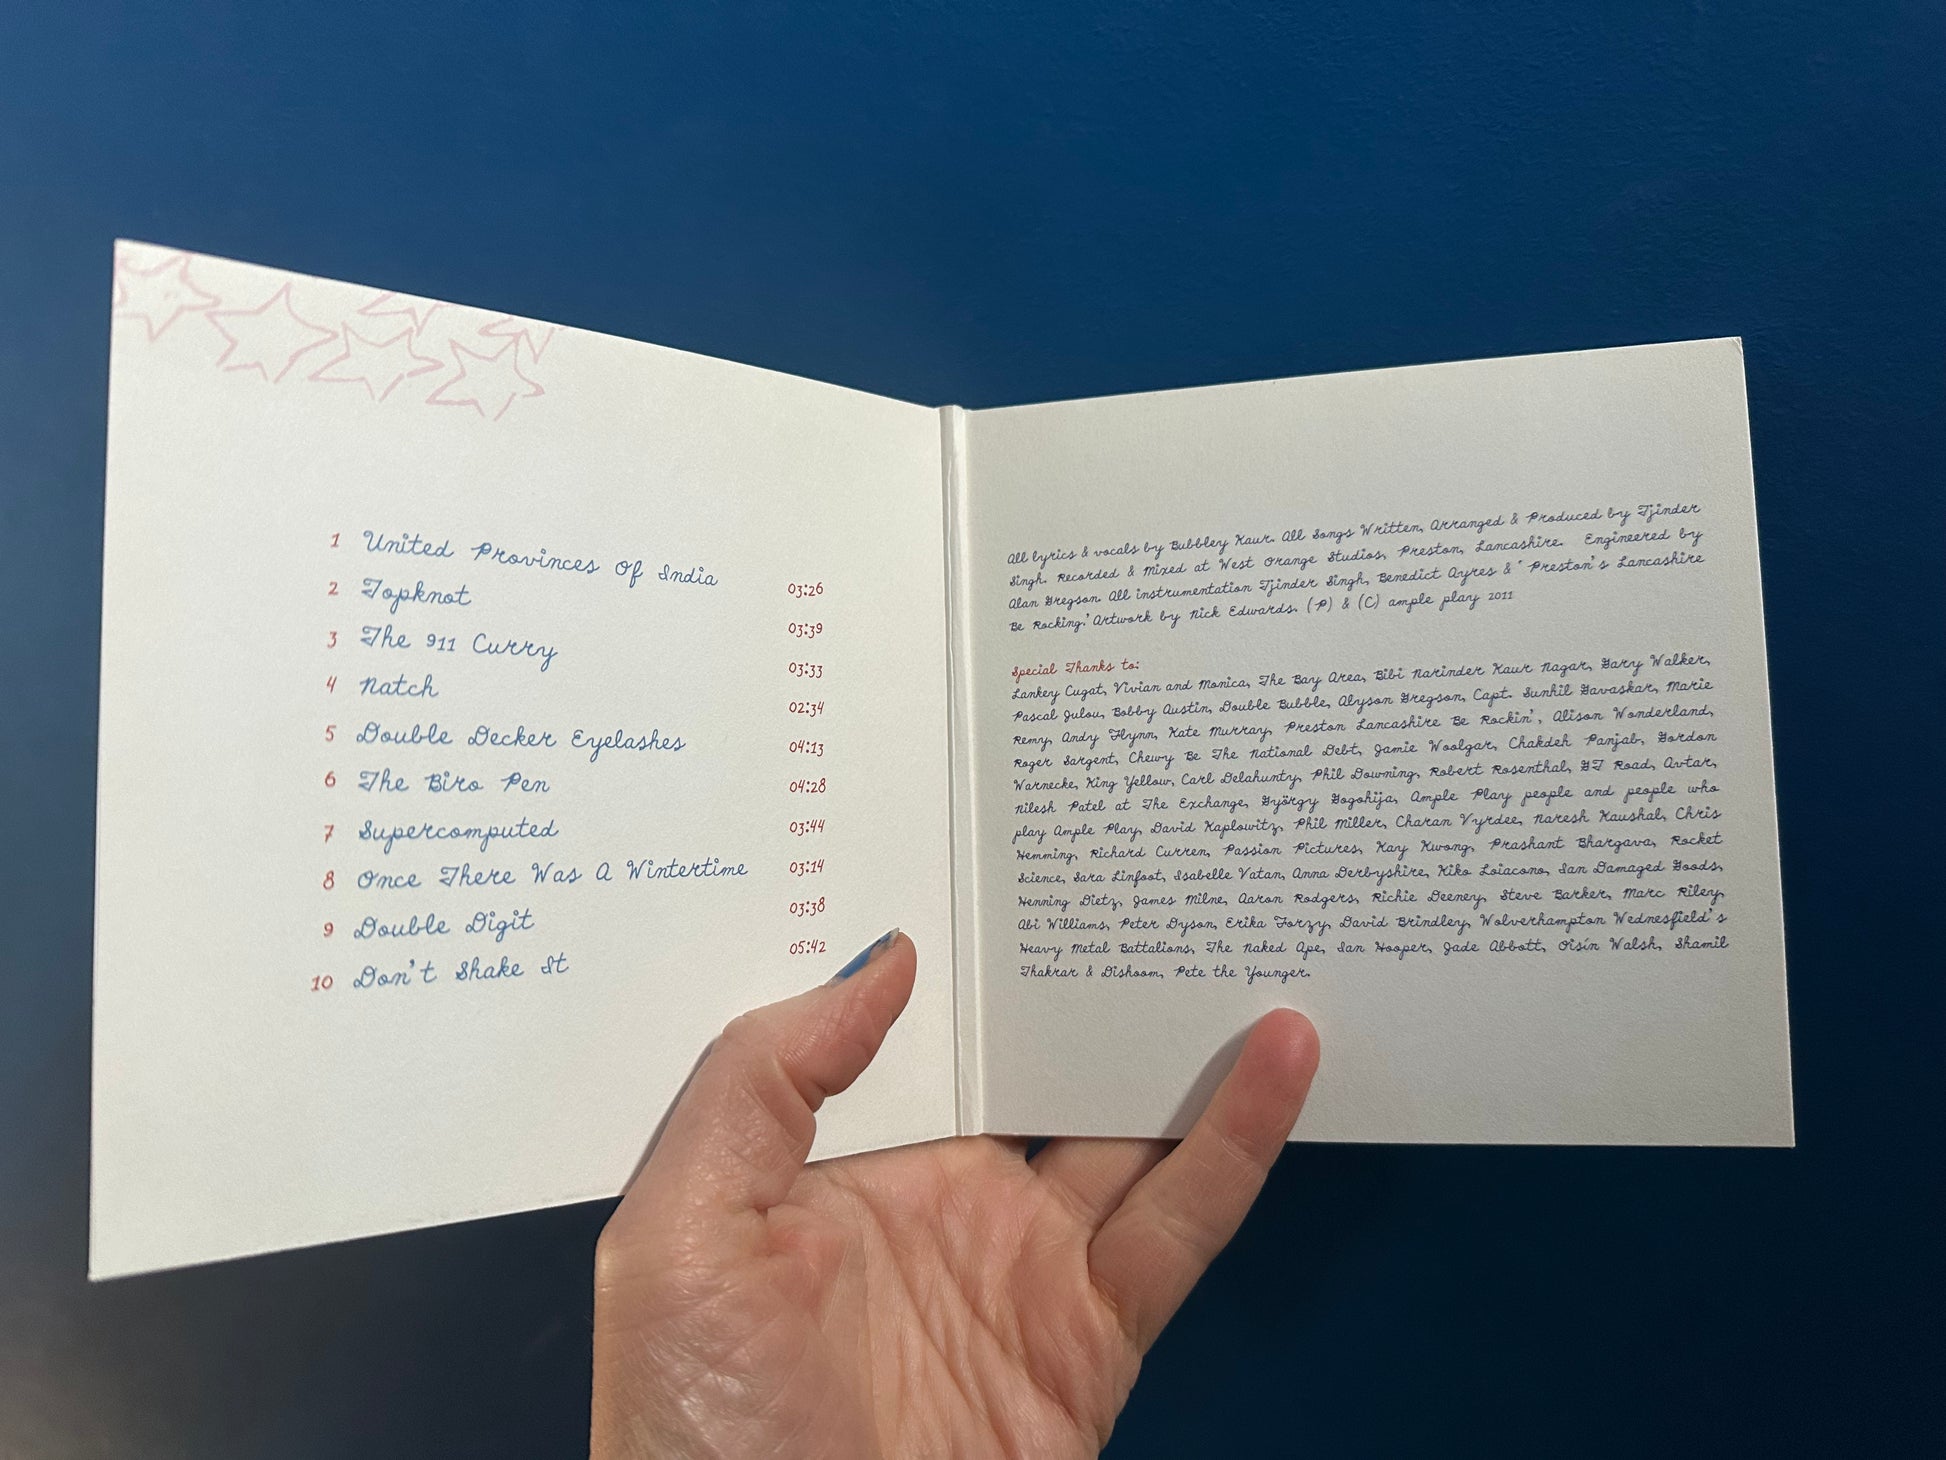 1 United Provinces Of India 03:26
2 Topknot 03:39
3 The 911 Curry 03:33
4 Natch 02:34
5 Double Decker Eyelashes 04:13
6 The Biro Pen 04:28
7 Supercomputed 03:44
8 Once There Was A Wintertime 03:14
9 Double Digit 03:38
10 Don't Shake It 05:42
All lyrics & vocals by Bubbley Kaur. All Songs Written, Arranged & Produced by Tjinder
Singh. Recorded & Mixed at West Orange Studios, Preston, Lancashire. Engineered by
Alan Gregson. All instrumentation Tjinder Singh, Benedict Ayres & ' Preston's Lancashire
Be Rocking.' Artwork by Nick Edwards. (P) & (C) ample play 2011
Special Thanks to:
Lankey Cugat, Vivian and Monica, The Bay Area, Bibi Narinder Kaur Nagar, Gary Walker,
Pascal Julou, Bobby Austin, Double Bubble, Alyson Gregson, Capt. Sunhil Gavaskar, Marie
Remy, Andy Flynn, Kate Murray, Preston Lancashire Be Rockin', Alison Wonderland,
Roger Sargent, Chewy Be The National Debt, Jamie Woolgar, Chakdeh Panjab, Gordon
Warnecke, King Yellow, Carl Delahunty, Phil Downing, Robert Rosenthal, GT Road, Avtar,
Nilesh Patel at The Exchange, György Gogohija, Ample Play people and people who
play Ample Play, David Kaplowitz, Phil Miller, Charan Vyrdee, Naresh Kaushal, Chris
Hemming, Richard Curren, Passion Pictures, Kay Kwong, Prashant Bhargava, Rocket
Science, Sara Linfoot, Isabelle Vatan, Anna Derbyshire, Kiko Loiacono, Ian Damaged Goods,
Henning Dietz, James Milne, Aaron Rodgers, Richie Deeney, Steve Barker, Marc Riley,
Abi Williams, Peter Dyson, Erika Forzy, David Brindley, Wolverhampton Wednesfield's
Heavy Metal Battalions, The Naked Ape, Ian Hooper, Jade Abbott, Oisín Walsh, Shamil
Thakrar & Dishoom, Pete the Younger.